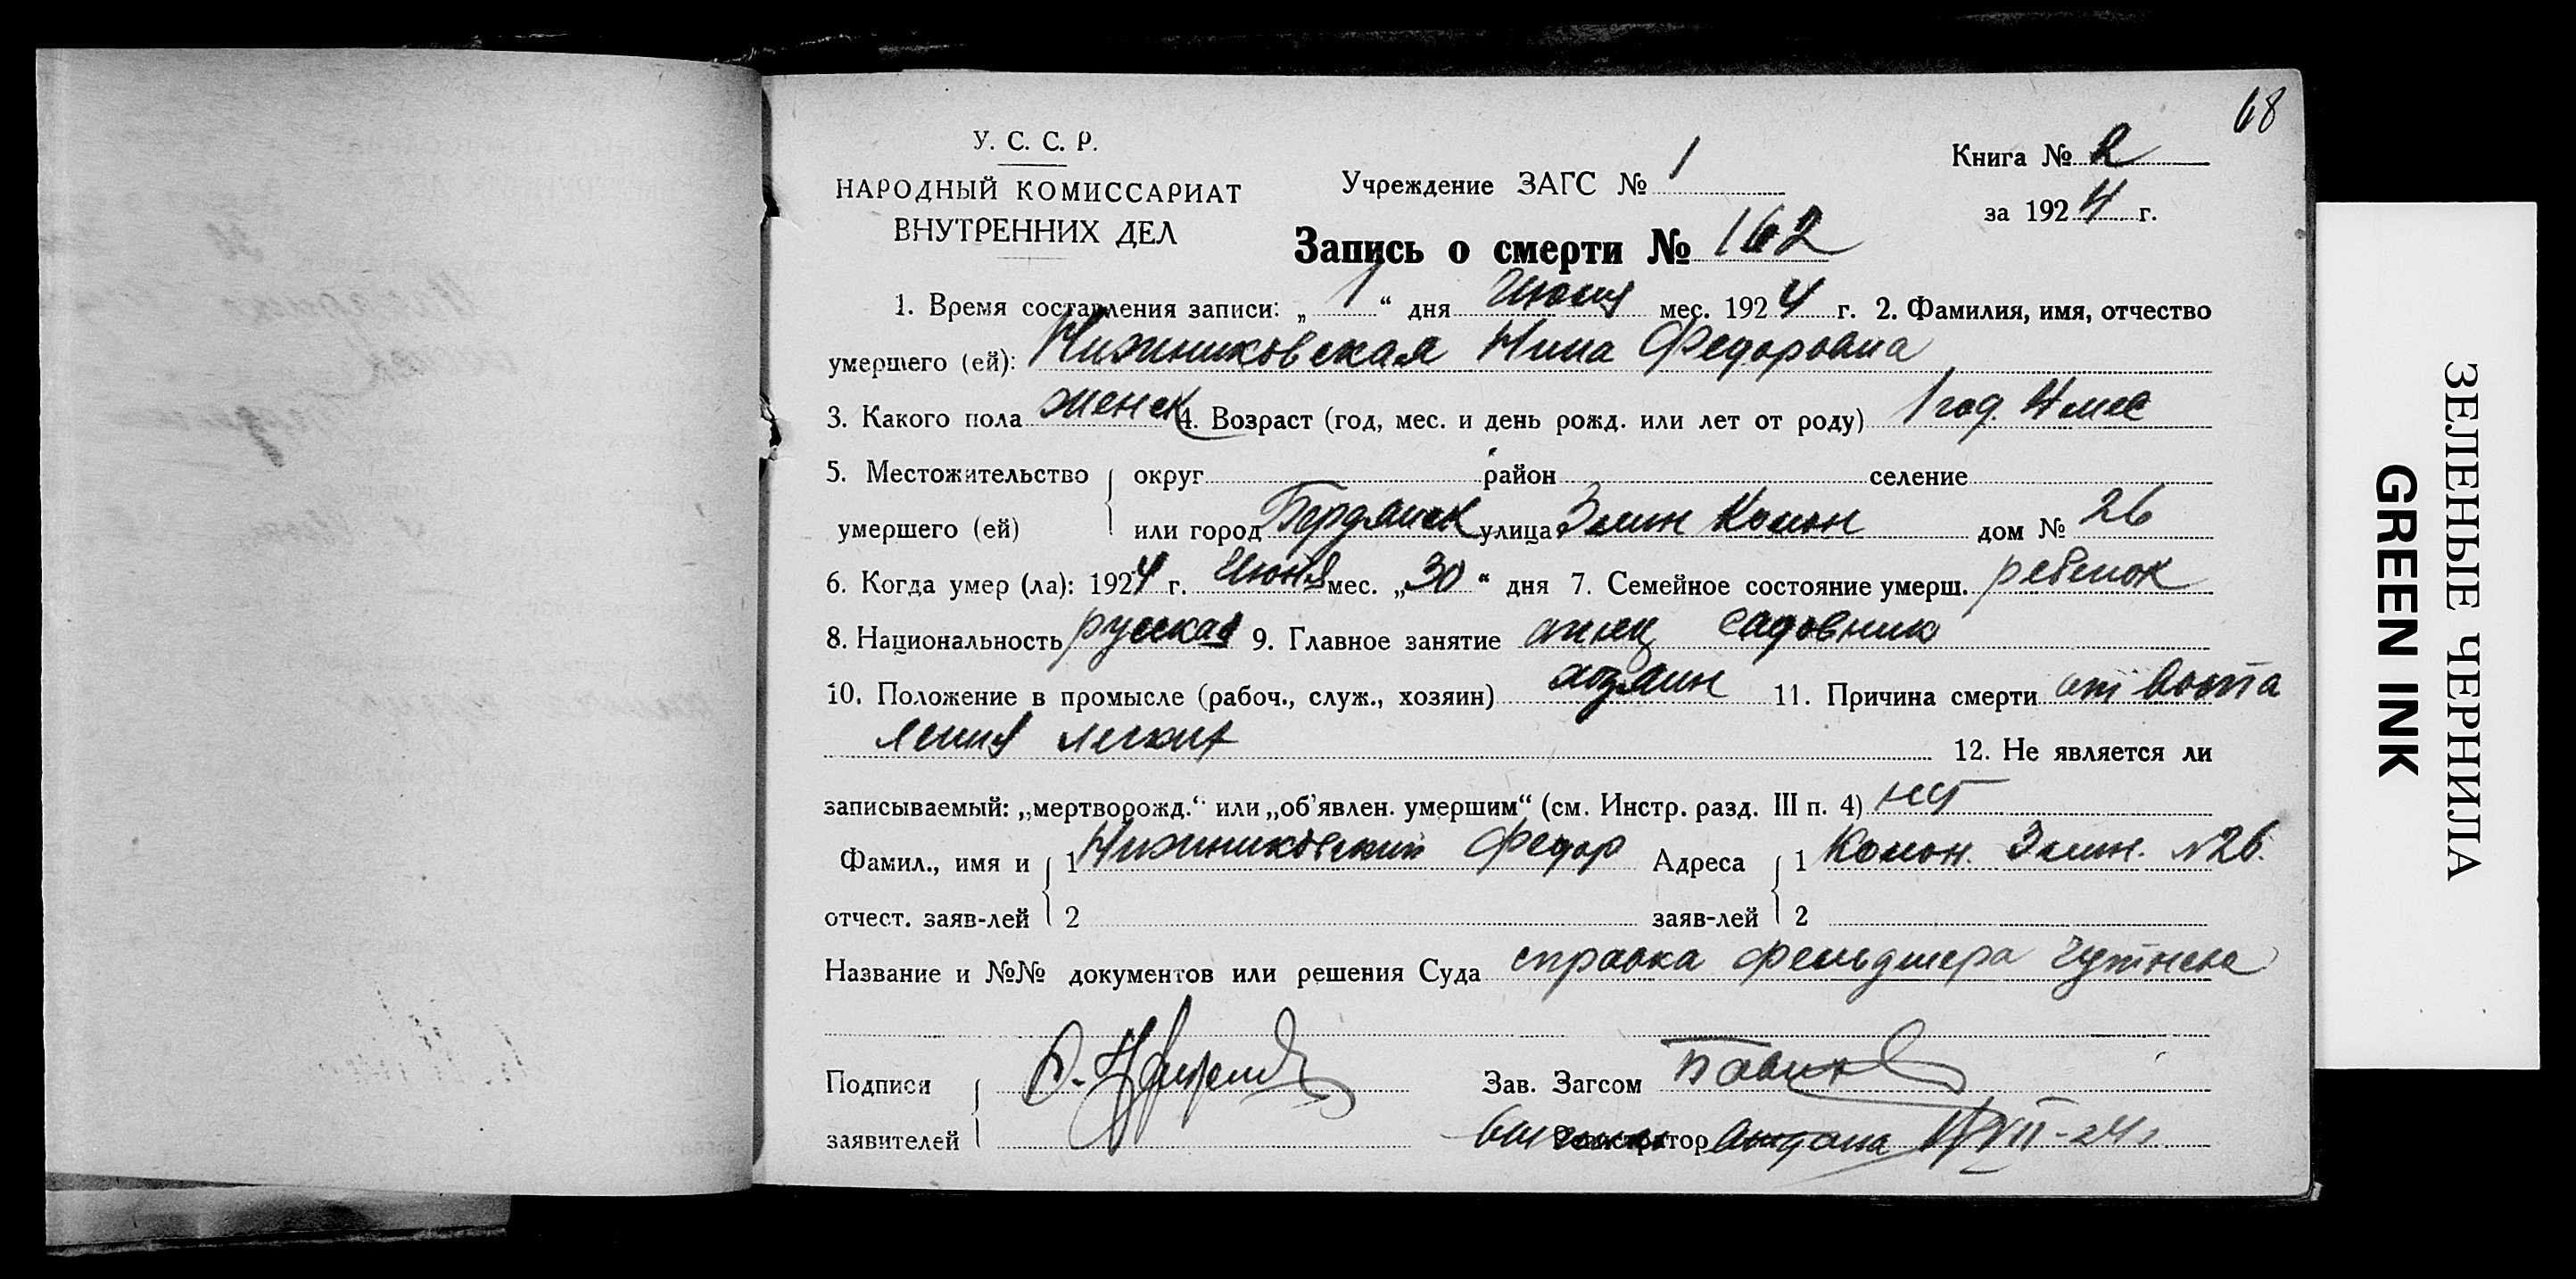 68
У. С. С. Р.
НАРОДНЫЙ КОМИССАРИАТ
ВНУТРЕННИХ ДЕЛ
Учреждение ЗАГС № 1
Книга № 2
за 1924 г.
Запись о смерти № 162
1. Время составления записи: „1“ дня Июля мес. 1924 г. 2. Фамилия, имя, отчество
умершего (ей): Нижниковская Нина Федоровна
3. Какого пола женск 4. Возраст (год, мес. и день рожд. или лет от роду) 1 год. 4 мес
5. Местожительство округ район селение
умершего (ей) или город Бердянск улица дом № 26
6. Когда умер (ла): 1924 г. Июня мес. „30“ дня 7. Семейное состояние умерш. ребенок
8. Национальность русская 9. Главное занятие отец садовник
10. Положение в промысле (рабоч., служ., хозяин) хозяин 11. Причина смерти от воспа
ления легких 12. Не является ли
записываемый: „мертворожд.“ или „об’явлен. умершим“ (см. Инстр. разд. III п. 4) нет
Фамил., имя и 1 Нижниковский Федор Адреса 1 Колон. №26.
отчест. заяв-лей 2 заяв-лей 2
Название и №№ документов или решения Суда справка фельдшера
Подписи Зав. Загсом
заявителей Регистратор VII-24г
ЗЕЛЕНЫЕ ЧЕРНИЛА
GREEN INK